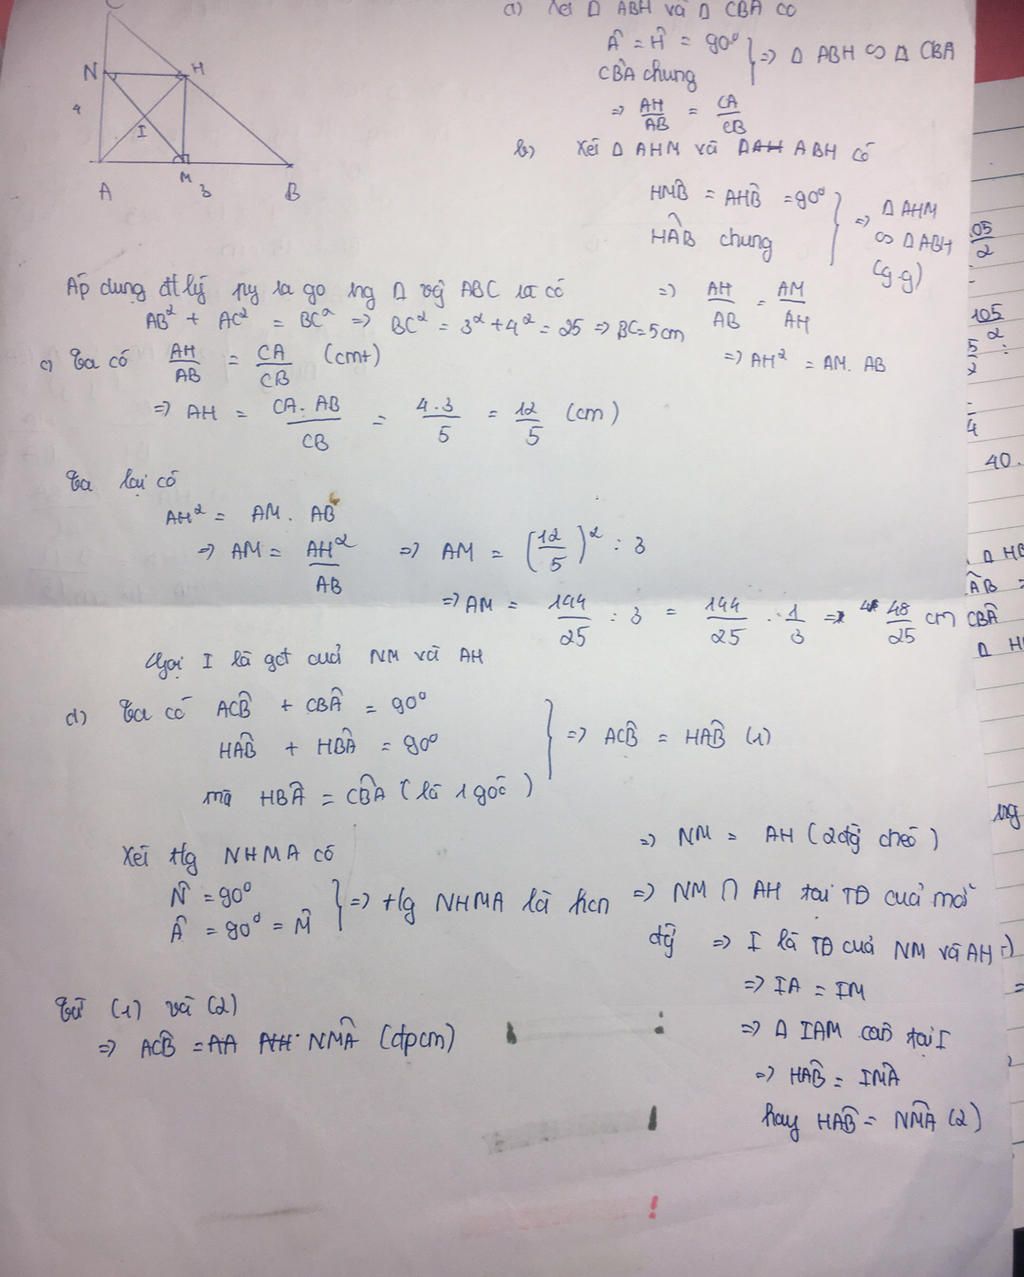 C
N
H
4
I
A
M
3
B
a) Xét Δ ABH và Δ CBA có
Â = Ĥ = 90°
CB̂A chung
=> Δ ABH ∽ Δ CBA
=> AH/AB = CA/CB
b) Xét Δ AHM và ΔAH ABH có
HM̂B = AĤB = 90°
HÂB chung
=> Δ AHM
∽ Δ ABH
(g.g)
=> AH/AB = AM/AH
=> AH² = AM. AB
Áp dụng đtlý py ta go tng Δ vg ABC ta có
AB² + AC² = BC² => BC² = 3² + 4² = 25 => BC = 5cm
c) Ta có AH/AB = CA/CB (cmt)
=> AH = CA. AB/CB = 4.3/5 = 12/5 (cm)
Ta lại có
AH² = AM. AB
=> AM = AH²/AB => AM = (12/5)² : 3
=> AM = 144/25 : 3 = 144/25 . 1/3 => 48/25 cm
Gọi I là gđ cuả NM và AH
d) Ta có AĈB + CB̂A = 90°
HÂB + HB̂A = 90°
mà HB̂A = CB̂A (là 1 góc)
=> AĈB = HÂB (1)
Xét tg NHMA có
N̂ = 90°
Â = 90° = M̂
=> tg NHMA là hcn
=> NM = AH (2 đg chéo)
=> NM ∩ AH tại TĐ cuả mỗi
đg => I là TĐ cuả NM và AH
=> IA = IM
=> Δ IAM cân tại I
=> HÂB = IM̂A
hay HÂB = NM̂A (2)
Từ (1) và (2)
=> AĈB = AA AH NM̂A (đpcm)
05/2
105/2
5/2
4
40.
Δ HB
ÂB =
CBÂ
Δ H
ng